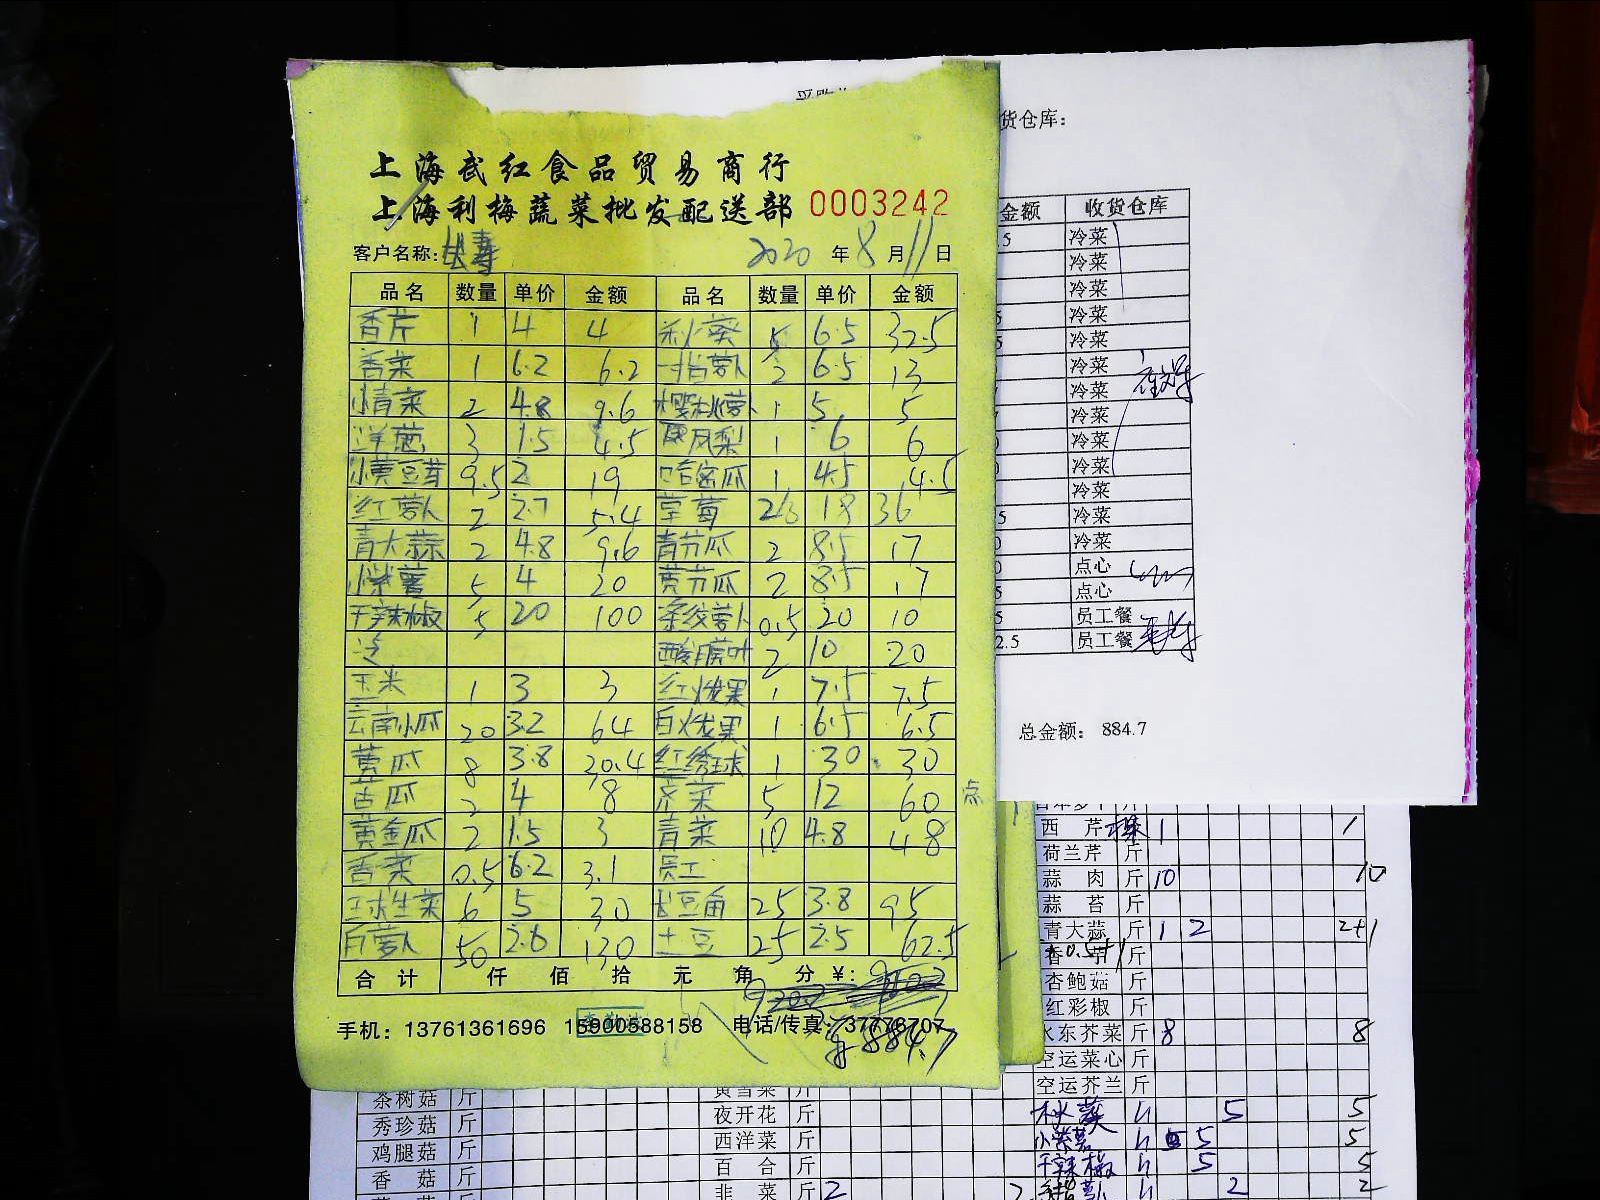 上海武红食品贸易商行
上海利梅蔬菜批发配送部 0003242
客户名称: 长寿 2020 年 8 月 11 日
品名 数量 单价 金额 品名 数量 单价 金额
香芹 1 4 4 秋葵 5 6.5 32.5
香菜 1 6.2 6.2 手指萝卜 2 6.5 13
小青菜 2 4.8 9.6 樱桃萝卜 1 5 5
洋葱 3 1.5 4.5 凤梨 1 6 6
小黄豆芽 9.5 2 19 哈密瓜 1 4.5 4.5
红萝卜 2 2.7 5.4 草莓 2 18 36
青大蒜 2 4.8 9.6 青节瓜 2 8.5 17
小紫薯 5 4 20 黄节瓜 2 8.5 17
干辣椒 5 20 100 萝卜 0.5 20 10
冷 酸模叶 2 10 20
玉米 1 3 3 红火龙果 1 7.5 7.5
云南小瓜 20 3.2 64 白火龙果 1 6.5 6.5
黄瓜 8 3.8 30.4 红绣球 1 30 30
古瓜 2 4 8 荠菜 5 12 60 点
黄金瓜 2 1.5 3 青菜 10 4.8 48
香菜 0.5 6.2 3.1 员工
球生菜 6 5 30 长豆角 25 3.8 95
白萝卜 50 2.6 130 土豆 25 2.5 62.5
合计 仟 佰 拾 元 角 分 ¥:
手机: 13761361696 15900588158 电话/传真: 37776707
884.7
货仓库:
金额 收货仓库
.5 冷菜
冷菜
冷菜
5 冷菜
5 冷菜
冷菜
冷菜
冷菜
冷菜
冷菜
冷菜
5 冷菜
0 冷菜
0 点心
5 点心
5 员工餐
2.5 员工餐
总金额: 884.7
西芹 1 1
荷兰芹 斤
蒜肉 斤 10 10
蒜苔 斤
青大蒜 斤 1 2 2+1
香 斤
杏鲍菇 斤
红彩椒 斤
水东芥菜 斤 8 8
空运菜心 斤
空运芥兰 斤
秋葵 5 5
小紫薯 5 5
干辣椒 5 5
2 2
茶树菇 斤
秀珍菇 斤
鸡腿菇 斤
香菇 斤
夜开花 斤
西洋菜 斤
百合 斤
韭菜 斤 2